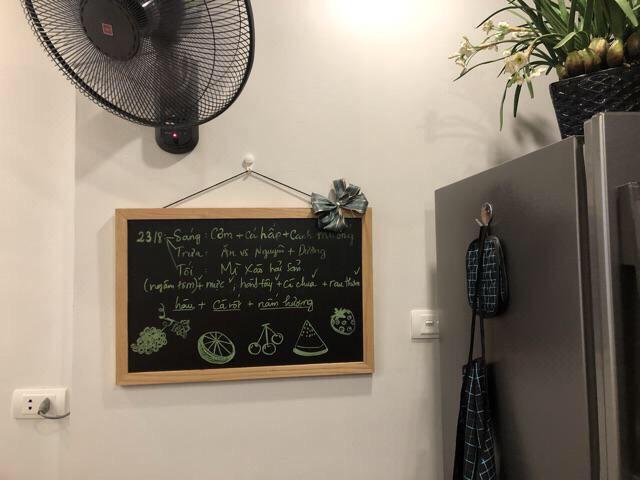 23/8 → Sáng: Cơm + cá hấp + Canh mướp
Trưa: Ăn vs Nguyện + Dương
Tối: Mì Xào hải sản
(ngâm tôm) + mực, hành tây + cà chua + rau thơm
hàu + cà rốt + nấm hương